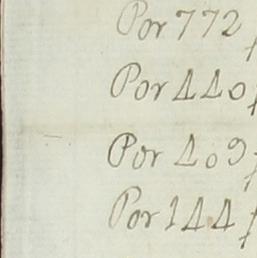 Por 772
Por 440
Por 409
Por 144